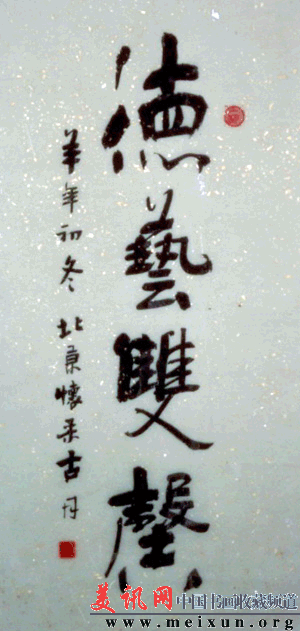 德藝雙馨
羊年初冬 北京懷柔古丹
美讯网 中国书画收藏频道
www.meixun.org